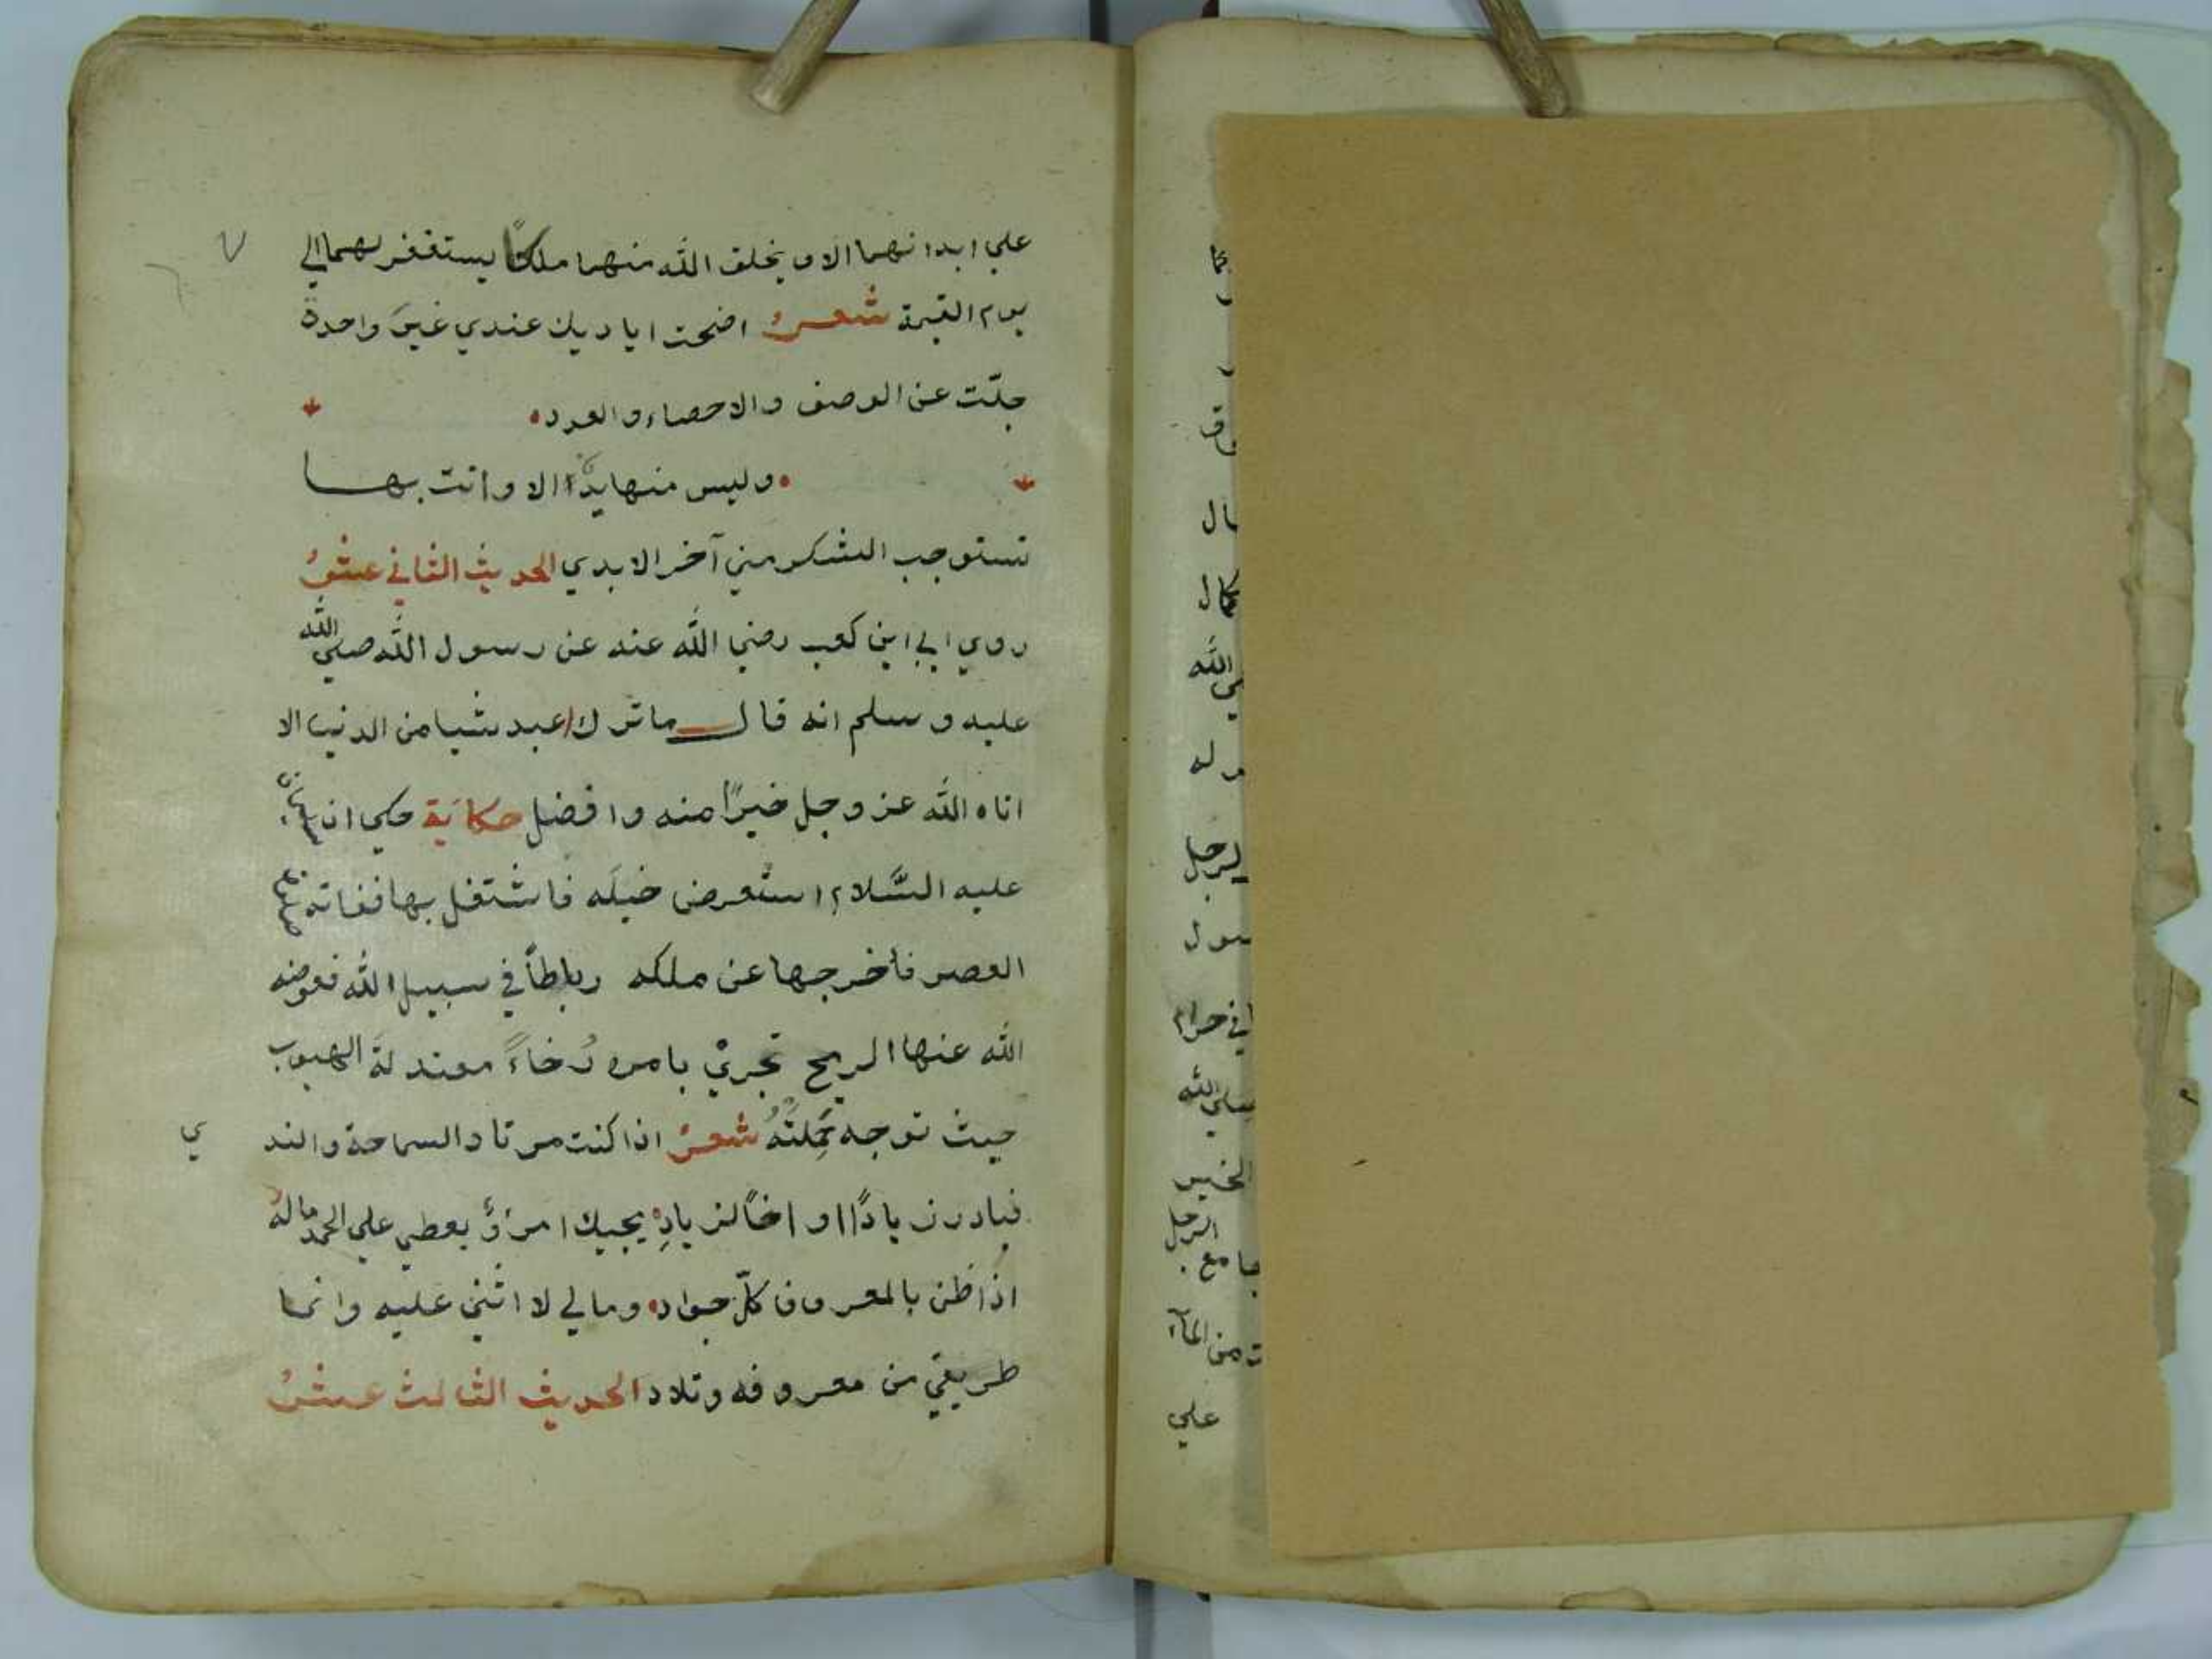 علي ابدانهما الا ويخلق الله منهما ملكًا يستغفر لهما الي
يوم القيمة شعرٌ اضحت اياديك عندي غيرَ واحدة
جلّت عن الوصف والاحصاء والعدد
وليس منها يدًا الا وانت بها
تستوجب الشكر مني آخر الابدي الحديث الثاني عشرُ
روي ابي ابن كعب رضي الله عنه عن رسول الله صلي الله
عليه وسلم انه قال ما ترك عبد شيا من الدنيا الا
اتاه الله عز وجل خيرًا منه وافضل حكاية حكي ان سليمان
عليه السَّلام استعرض خيلَه فاشتغل بها ففاته
العصر فأخرجها عن ملكه رباطاً في سبيل الله فعوضه
الله عنها الريح تجريْ بامره رُخاءً معتدلةَ الهبوب
حيث توجه شعرٌ اذا كنت مرتاد السماحة والند
ي
فبادر زيادًا او اخًا لزيادِ يجبك امرؤٌ يعطي علي الحمد مالهُ
اذا ظن بالمعروف كلّ جواد وما لي لا اثني عليه وانما
طريقي من معروفه وتلاد الحديث الثالث عشرُ
ال
ي الله
له
لرجل
سول
في حرام
صلي الله
الخير
الرجل
جامع
ت من المآء
علي